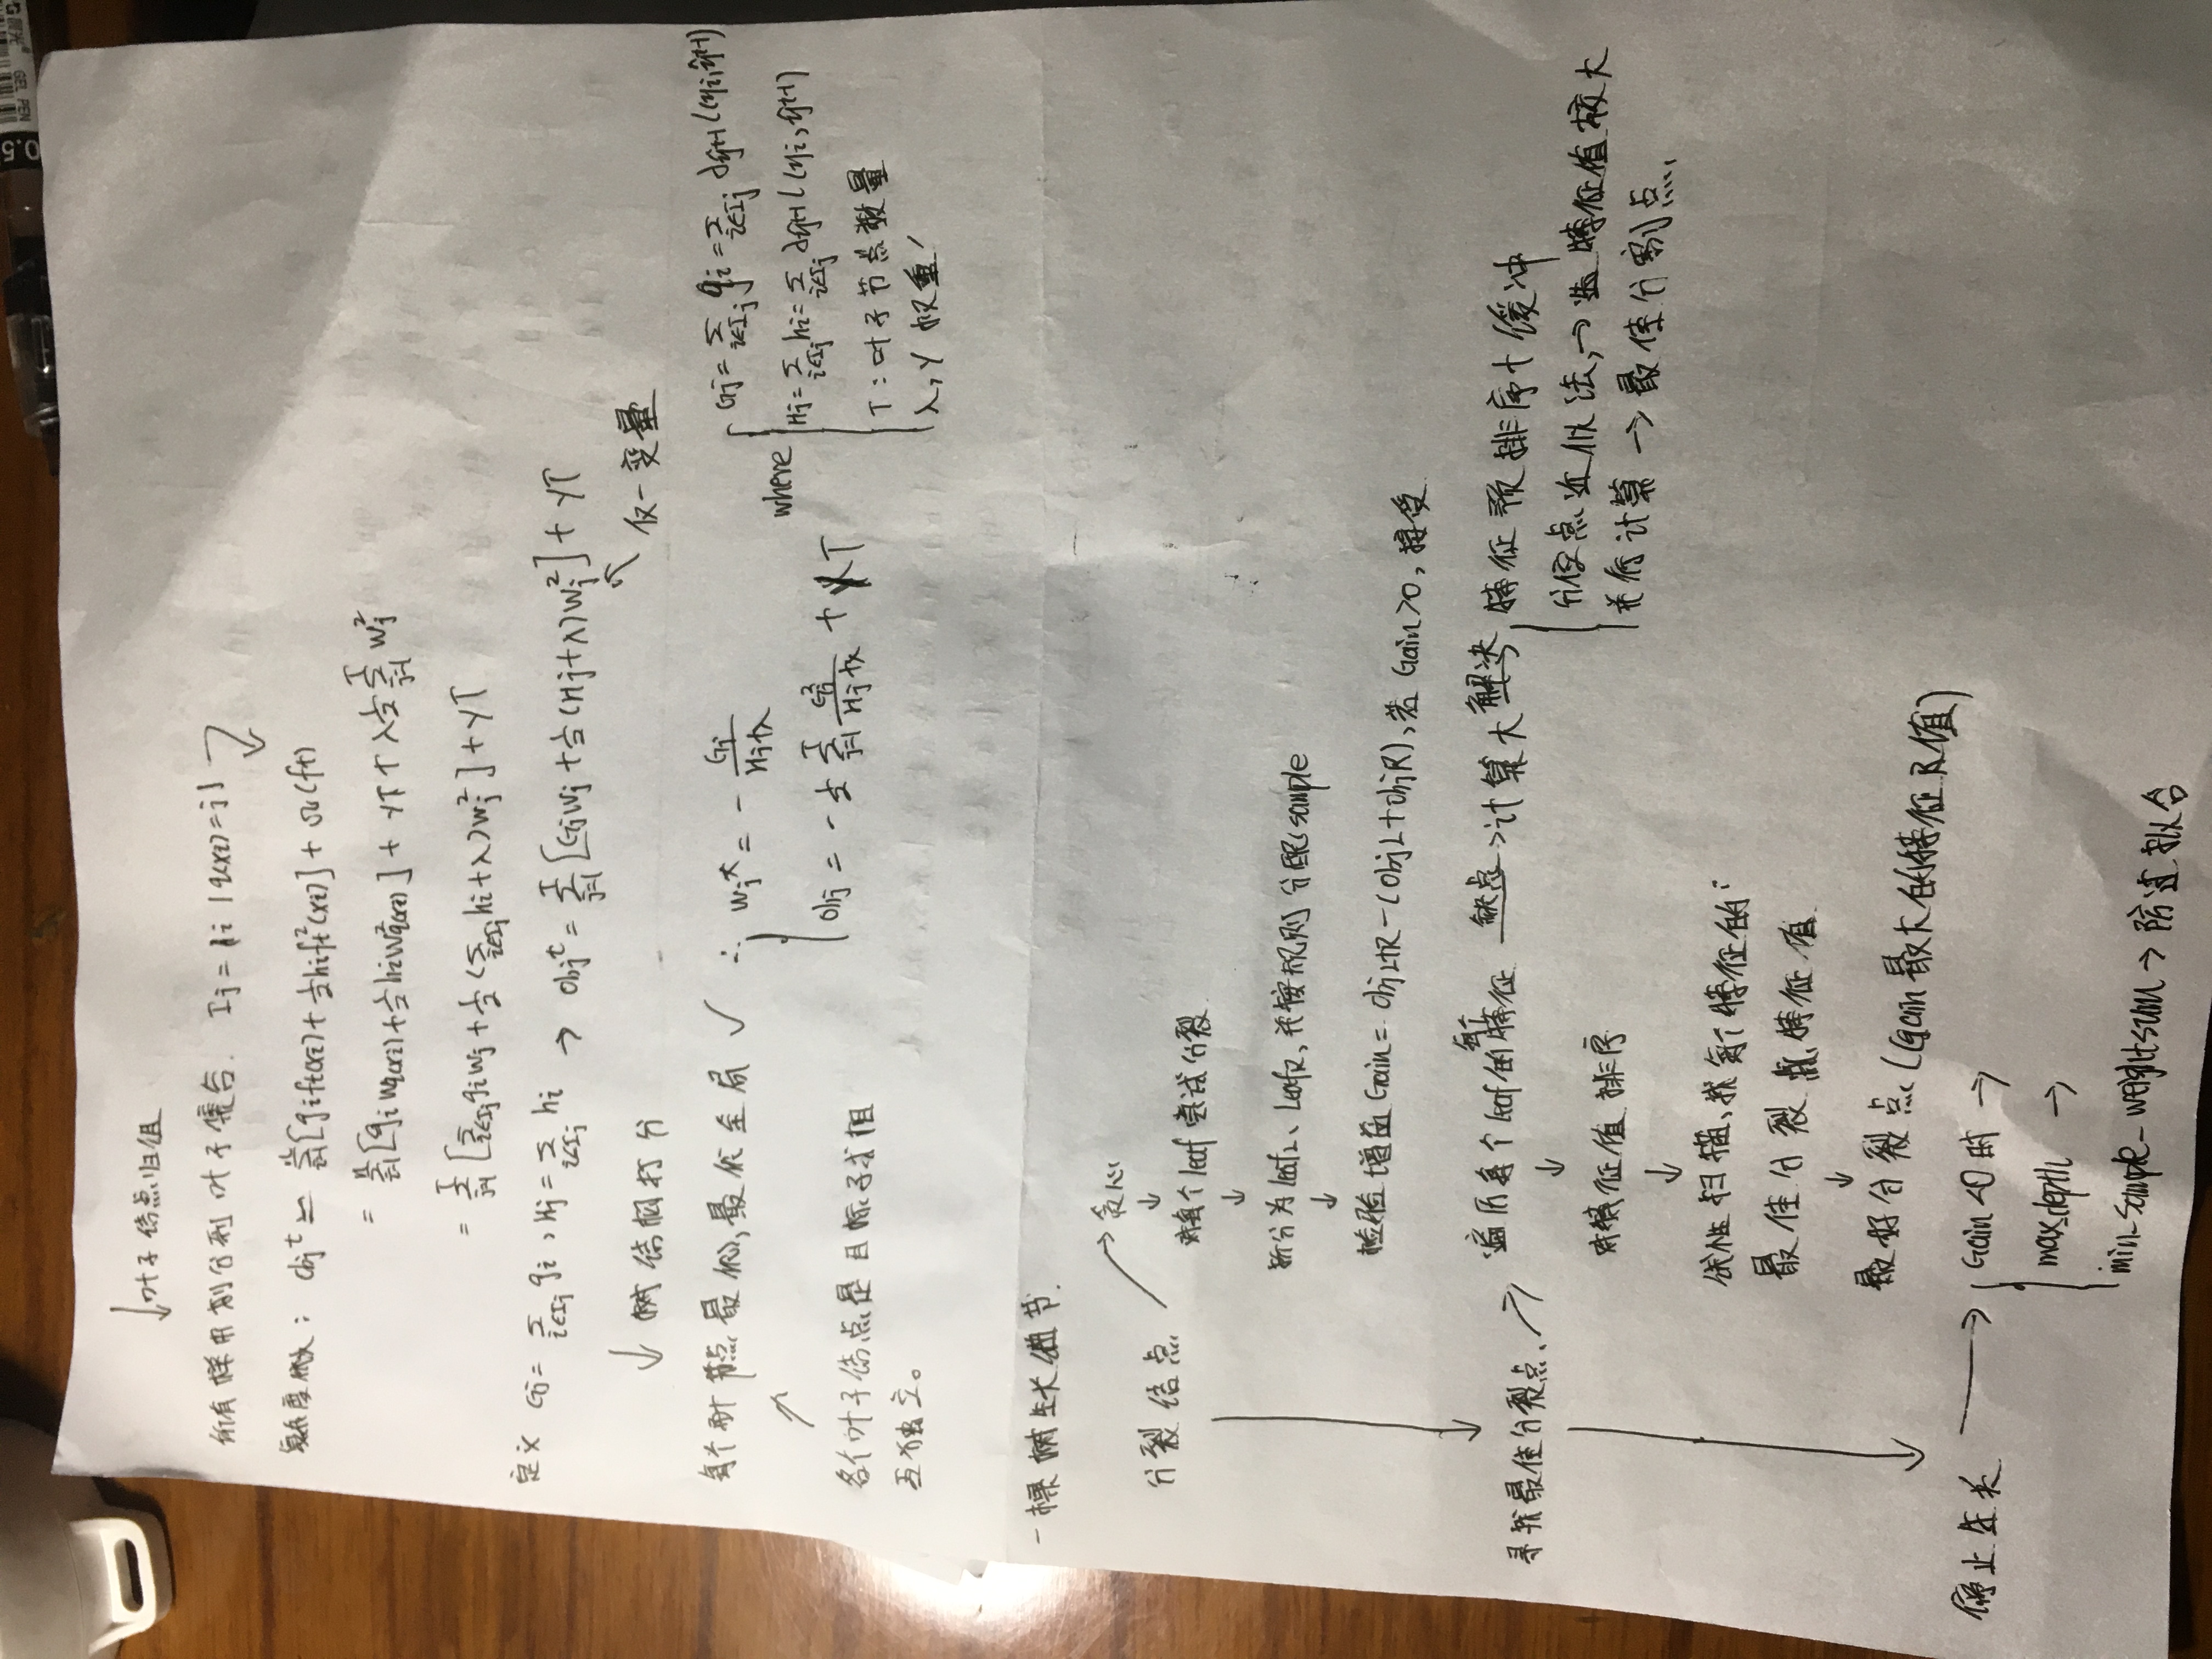 0.5
GEL PEN
↓叶子结点归组
所有样本划分到叶子集合. Ij = {i | q(xi)=j}
复杂度代入: Obj^t ≃ Σ_{i=1}^n [gift(xi) + ½hift²(xi)] + Ω(ft)
= Σ_{i=1}^n [gi wq(xi) + ½hi w²q(xi)] + γT + λ½ Σ_{j=1}^T wj²
= Σ_{j=1}^T [Σ_{i∈Ij} gi wj + ½(Σ_{i∈Ij} hi + λ)wj²] + γT
定义 Gj = Σ_{i∈Ij} gi, Hj = Σ_{i∈Ij} hi → Obj^t = Σ_{j=1}^T [Gjwj + ½(Hj+λ)wj²] + γT
仅一变量
↓ 树结构打分
每个叶节点最优, 最优全局 ✓ ∴ wj* = - Gj/(Hj+λ)
Obj = -½ Σ_{j=1}^T Gj²/(Hj+λ) + γT
where Gj = Σ_{i∈Ij} gi = Σ_{i∈Ij} ∂ŷt-1 l(yi, ŷt-1)
Hj = Σ_{i∈Ij} hi = Σ_{i∈Ij} ∂ŷt-1 l(yi, ŷt-1)
T: 叶子节点数量
λ, γ 权重
各个叶子结点是目标子式相
互独立。
一棵树生长细节.
分裂结点 → 贪心
↓
对每个leaf尝试分裂
↓
拆分为leafL、LeafR, 并按规则分配sample
↓
检验增益Gain = ObjL+R - (ObjL+ObjR), 若Gain>0, 接受
寻找最佳分裂点 → 遍历每个leaf的每个特征 缺点→计算大 解决→ 特征预排序+缓冲
分位点近似法, → 选特征值较大
并行计算 → 最佳分割点
↓
对特征值排序
↓
线性扫描, 找每个特征的
最佳分裂点特征值
↓
最好分裂点 (Gain最大的特征及值)
停止生长 → Gain<0时 →
max_depth →
min_sample_weight sum → 防过拟合